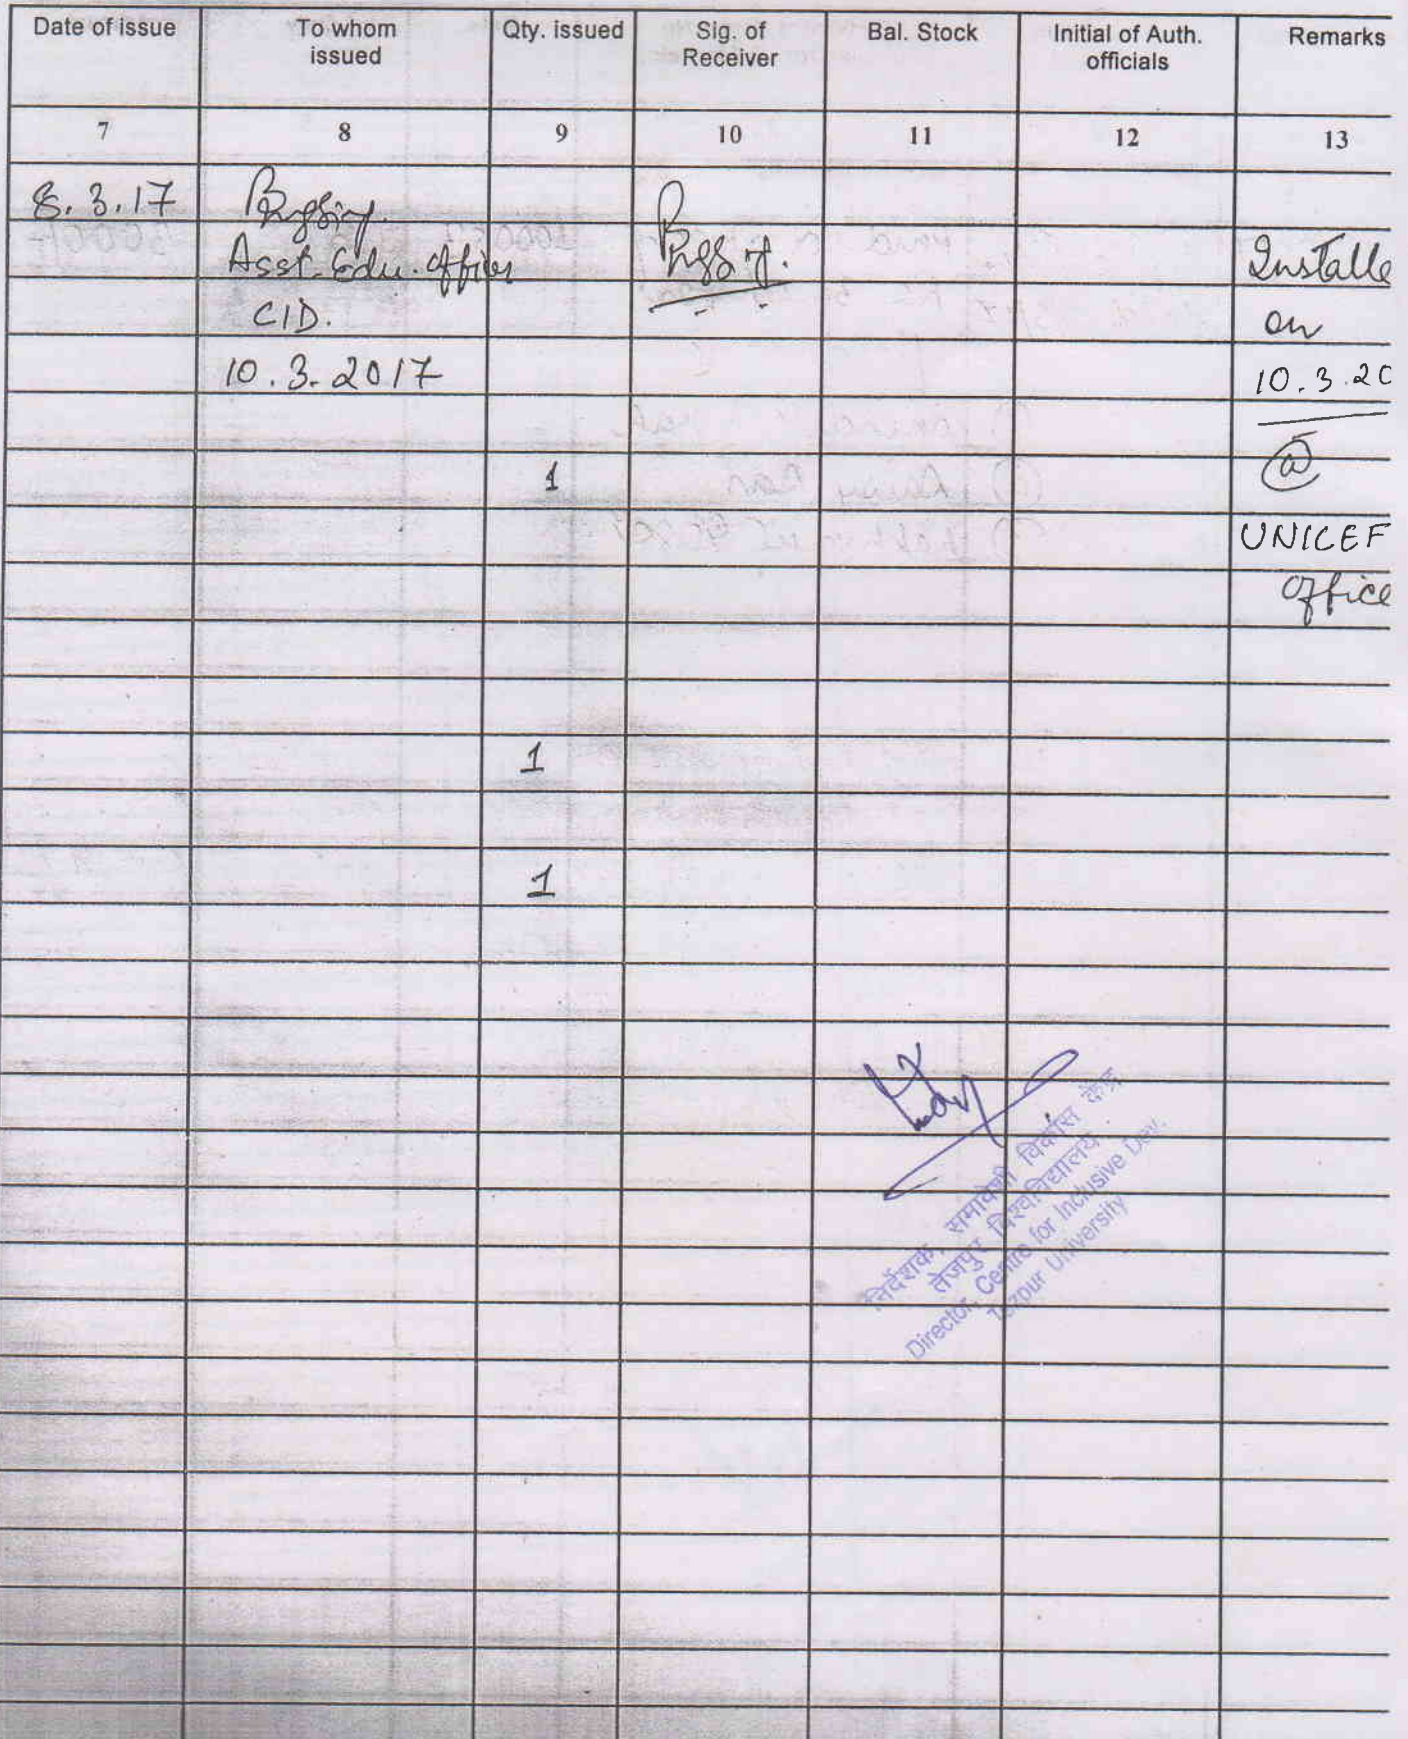 Date of issue To whom issued Qty. issued Sig. of Receiver Bal. Stock Initial of Auth. officials Remarks
7 8 9 10 11 12 13
8.3.17
Asst. Edu. officer Installe
CID. on
10.3.2017 10.3.20
1 @
UNICEF
office
1
1
निर्देशक, समावेशी विकास केन्द्र
तेजपुर विश्वविद्यालय
Director, Centre for Inclusive Dev.
Tezpur University